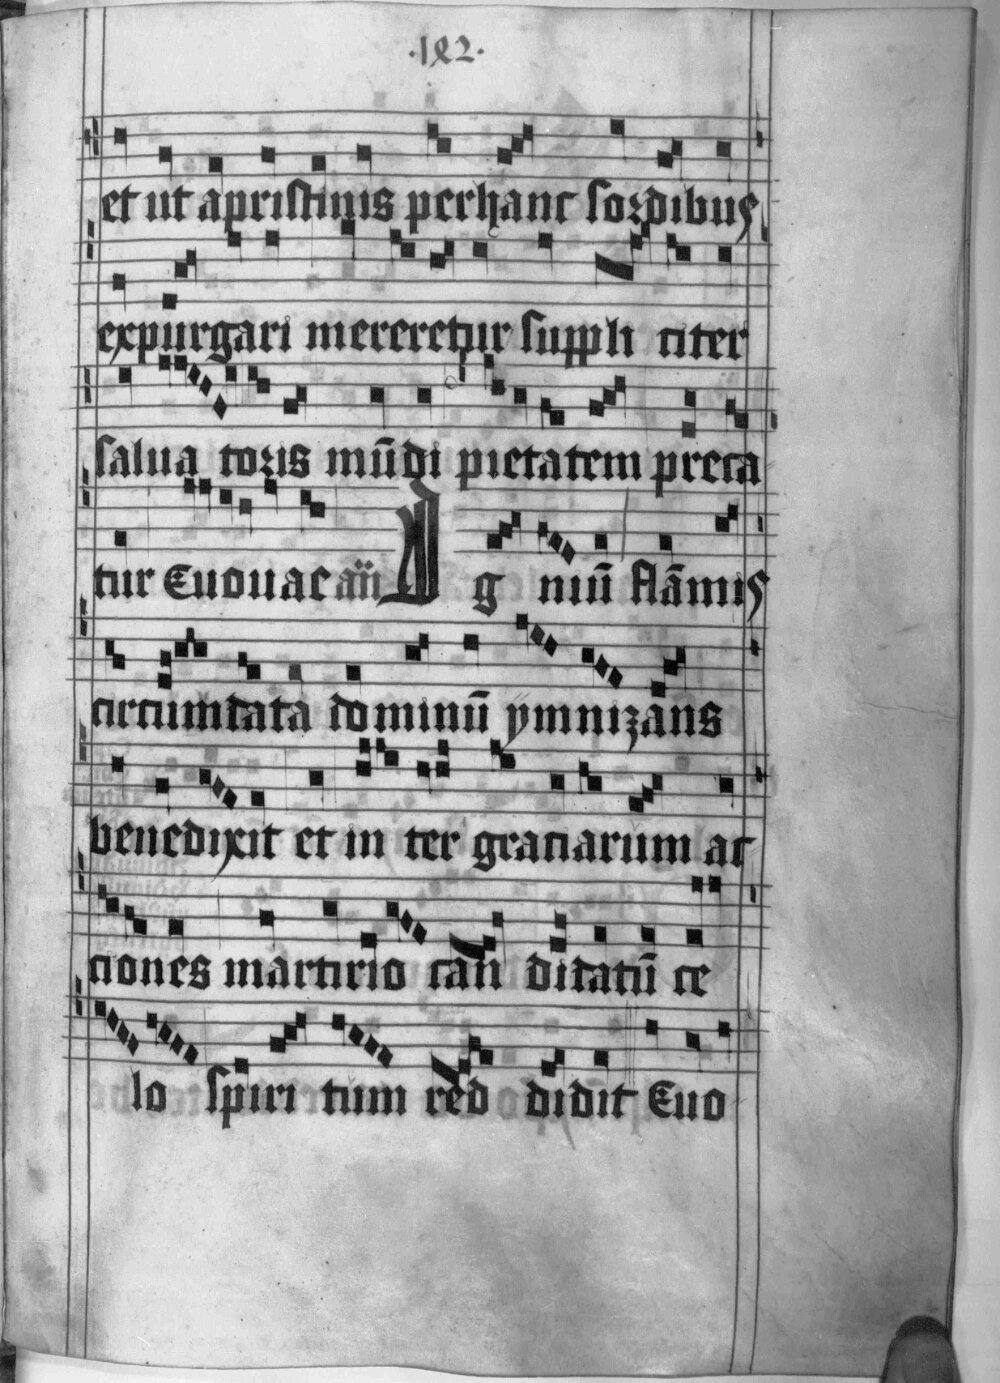 ·182·
et ut apristinis perhanc sordibus
expurgari mereretur suppli citer
salua toris mūdi pietatem preca
tur Euouae añ I g niū flāmis
circumdata dominū ymnizans
benedixit et in ter graciarum ac
ciones martirio can didatū ce
lo spiri tum red didit Euo